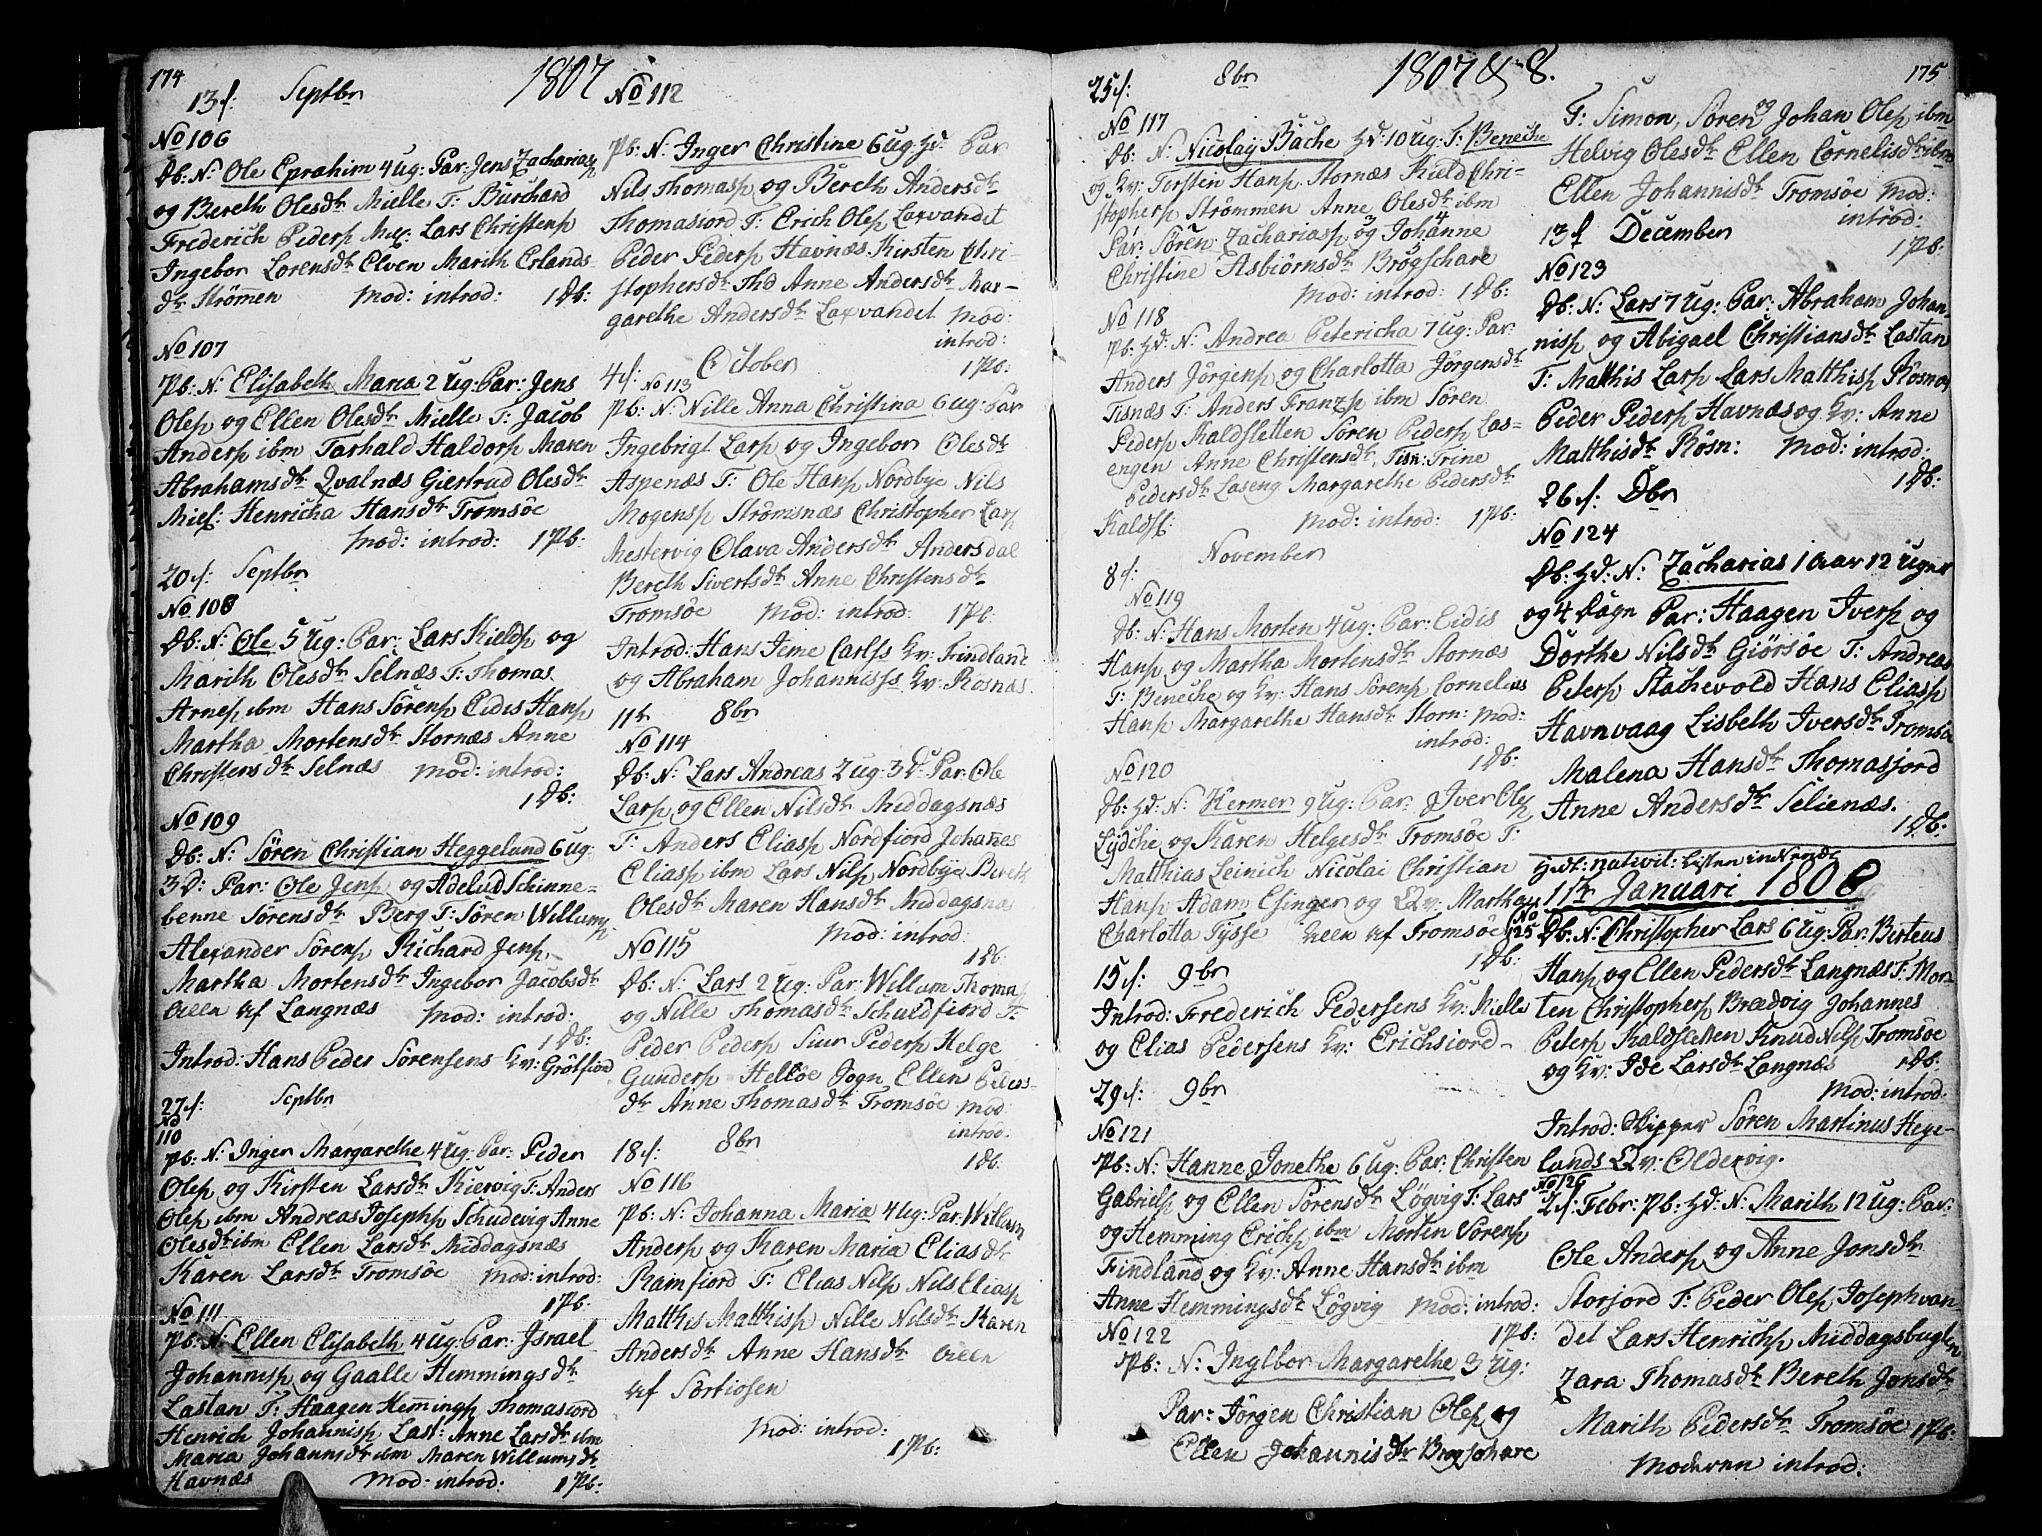 174
1807
13 f: Septbr
No 106
Db: N: Ole Eprahim 4 Ug: Par: Jens Zachariasp
og Bereth Olesdtr Mielle T: Burchard
Frederich Pedersp Mef: Lars Christensp
Ingebor Lorensdtr Elven Marith Erlands-
dtr Strömen Mod: introd: 1 Db:
No 107
Pb: N: Elisabeth Maria 2 Ug: Par: Jens
Olesp og Ellen Olesdtr Mielle T: Jacob
Andersp ibm Tarhald Haldorsp Maren
Abrahamsdtr Qvalnæs Giertrud Olesdtr
Mief: Henricha Hansdtr Tromsöe
Mod: introd: 1 Pb:
20 f: Septbr
No 108
Db: N: Ole 5 Ug: Par: Lars Kieldsp og
Marith Olesdtr Selnæs T: Thomas
Arnesp ibm Hans Sörensp Eidis Hansp
Martha Mortensdtr Stornæs Anne
Christensdtr Selnæs Mod: introd:
1 Db:
No 109
Db: N: Sören Christian Heggelund 6 Ug:
3 D: Par: Ole Jensp og Adelud Schinne-
benne Sörensdtr Berg T: Sören Willumsp
Alexander Sörensp Richard Jensp
Martha Mortensdtr Ingebor Jacobsdtr
Allen af Langnæs Mod: introd:
1 Db:
Introd: Hans Peder Sörensens Kv: Grötfiord
27 f: Septbr
No
110
Pb: N: Inger Margarethe 4 Ug: Par: Peder
Olesp og Kirsten Larsdtr Kiervig T: Anders
Olesp ibm Andreas Josephsp Schudevig Anne
Olesdtr ibm Ellen Larsdtr Middagsnæs
Karen Larsdtr Tromsöe Mod: introd:
1 Pb:
No 111
Pb: N: Ellen Elisabeth 4 Ug: Par: Israel
Johannisp og Gaalle Hemmingsdtr
Lastan T: Haagen Hemingsp Thomasiord
Henrich Johannisp Last: Anne Larsdtr ibm
Maria Johannsdtr ibm Maren Willumsdtr
Havnæs Mod: introd: 1 Pb:
No 112
Pb: N: Inger Christine 6 Ug: Hd: Par
Nils Thomasp og Bereth Andersdtr
Thomasiord T: Erich Olesp Laxvandet
Peder Pedersp Havnæs Kirsten Chri-
stophersdtr Thd Anne Andersdtr Mar-
garethe Andersdtr Laxvandet Mod:
introd:
October 1 Pb:
4 f: No 113
Pb: N: Nille Anna Christina 6 Ug: Par
Ingebrigt Larsp og Ingebor Olesdtr
Aspenæs T: Ole Hansp Nordbye Nils
Mogensp Strömsnæs Christopher Larsp
Mestervig Olava Andersdtr Andersdal
Bereth Sivertsdtr Anne Christensdtr
Tromsöe Mod: introd: 1 Pb:
Introd: Hans Jeme Carlss Kv: Findland
og Abraham Johanniss Kv: Rosnæs
11te 8br
No 114
Db: N: Lars Andreas 2 Ug: 3 D: Par: Ole
Larsp og Ellen Nilsdtr Middagsnæs
T: Anders Eliasp Nordfiord Johannes
Eliasp ibm Lars Nilsp Nordbye Bereth
Olesdtr Maren Hansdtr Middagsnæs
Mod: introd:
No 115 1 Db:
Db: N: Lars 2 Ug: Par: Willum Thomasp
og Nille Thomasdtr Schuldfiord T:
Peder Pedersp Siur Pedersp Helge
Gundersp Hellöe Sogn Ellen Peders-
dtr Anne Thomasdtr Tromsöe Mod:
introd:
18 f: 8br 1 Db:
No 116
Pb: N: Johanna Maria 4 Ug: Par: Willum
Andersp og Karen Maria Eliasdtr
Ramfiord T: Elias Nilsp Nils Eliasp
Matthis Matthisp Nille Nilsdtr Karen
Andersdtr Anne Hansdtr Allen
af Sortiosen
Mod: introd:
1 Pb:
1807 & 8.
175
25 f: 8br
No 117
Db: N: Nicolay Bache Hd: 10 Ug: T: Beneche
og Kv: Torsten Hansp Stornæs Kield Chri-
stophersp Strömmen Anne Olesdtr ibm
Par: Sören Zachariasp og Johanne
Christine Asbiörnsdtr Brögschare
Mod: introd: 1 Db:
No 118
Pb: Hd: N: Andrea Petericha 7 Ug: Par:
Anders Jörgensp og Charlotta Jörgensdtr
Tisnæs T: Anders Franzsp ibm Sören
Pedersp Kaldsletten Sören Pedersp Las-
engen Anne Christensdtr Tisn: Trine
Pedersdtr Laseng Margarethe Pedersdtr
Kaldsl: Mod: introd: 1 Pb:
November
8 f:
No 119
Db: N: Hans Morten 4 Ug: Par: Eidis
Hansp og Martha Mortensdtr Stornæs
T: Beneche og Kv: Hans Sörensp Cornelius
Hansp Margarethe Hansdtr Storn: Mod:
introd:
1 Db:
No 120
Db: Hd: N: Hermer 9 Ug: Par: Iver Olesp
Lydche og Karen Helgesdtr Tromsöe T:
Matthias Leinich Nicolai Christian
Hansp Adam Esinger og Qv: Martha
Charlotta Tysse Allen af Tromsöe
1 Db:
15 f: 9br
Introd: Frederich Pedersens Kv: Mielle
og Elias Pedersens Kv: Erichsiord
29 f: 9br
No 121
Pb: N: Hanne Jonethe 6 Ug: Par: Christen
Gabrielsp og Ellen Sörensdtr Lögvig T: Lars
og Hemming Erichsp ibm Morten Sörensp
Findland og Kv: Anne Hansdtr ibm
Anne Hemmingsdtr Lögvig Mod: introd:
No 122 1 Pb:
Pb: N: Ingebor Margarethe 3 Ug:
Par: Jörgen Christian Olesp og
Ellen Johannisdtr Brogschare
T: Simon, Sören og Johan Olesp ibm
Helvig Olesdtr Ellen Cornelisdtr ibm
Ellen Johannisdtr Tromsöe Mod:
introd:
13 f December 1 Pb:
No 123
Db: N: Lars 7 Ug: Par: Abraham Johan-
nisp og Abigael Christiansdtr Lastan
T: Mathis Larsp Lars Matthisp Rösnæs
Peder Pedersp Havnæs og Kv: Anne
Matthisdtr Rösn: Mod: introd:
1 Db:
26 f: Dbr
No 124
Db: Hd: N: Zacharias 1 Aar 12 Uger
og 4 Dage Par: Haagen Iversp og
Dorthe Nilsdtr Giörsöe T: Andreas
Petersp Stachevold Hans Eliasp
Havnvaag Lisbeth Iversdtr Tromsöe
Malena Hansdtr Thomasjord
Anne Andersdtr Selienæs.
1 Db:
Hedt: nativit: Listen indsendt
1te Januari 1808
No
125 Db: N: Christopher Lars 6 Ug: Par: Berteus
Hansp og Ellen Pedersdtr Langnæs T: Mor-
ten Christophersp Bredvig Johannes
Petersp Kaldsletten Knud Nilsp Tromsöe
og Kv: Ide Larsdtr Langnæs 1 Db:
Mod: introd:
Introd: Skipper Sören Martinus Hege-
lunds Qv: Oldervig.
No 126
2 f: Febr: Pb: Hd: N: Marith 12 Ug: Par:
Ole Andersp og Anne Jonsdtr
Storjord T: Peder Olesp Josephvan
det Lars Henrichsp Middagsbugten
Zara Thomasdtr Bereth Jonsdtr
Marith Pedersdtr Tromsöe 1 Pb:
Moderen introd: